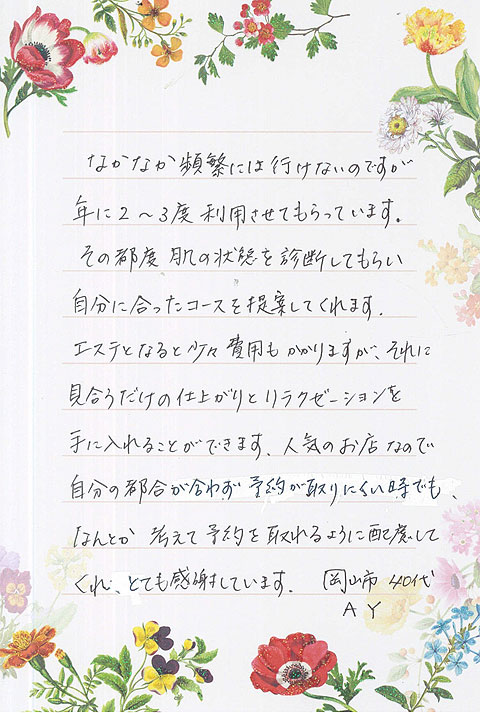 なかなか頻繁には行けないのですが
年に2〜3度利用させてもらっています。
その都度肌の状態を診断してもらい
自分に合ったコースを提案してくれます。
エステとなると少々費用もかかりますが、それに
見合うだけの仕上がりとリラクゼーションを
手に入れることができます。人気のお店なので
自分の都合が合わず予約が取りにくい時でも、
なんとか考えて予約を取れるように配慮して
くれ、とても感謝しています。 岡山市 40代
A Y